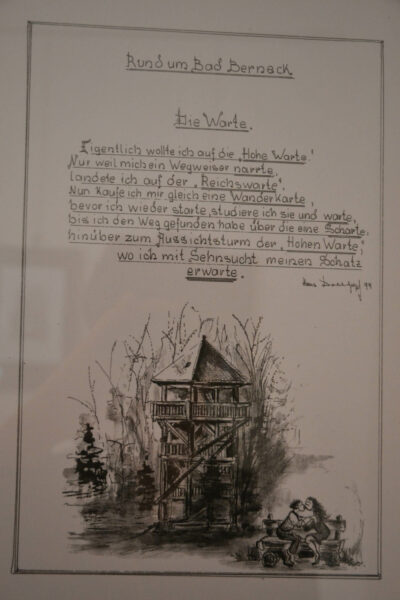 Rund um Bad Berneck
Die Warte.
Eigentlich wollte ich auf die „Hohe Warte.“
Nur weil mich ein Wegweiser narrte,
landete ich auf der „Reichswarte“.
Nun kaufe ich mir gleich eine Wanderkarte,
bevor ich wieder starte, studiere ich sie und warte,
bis ich den Weg gefunden habe über die eine Scharte,
hinüber zum Aussichtsturm der „Hohen Warte“,
wo ich mit Sehnsucht meinen Schatz
erwarte.